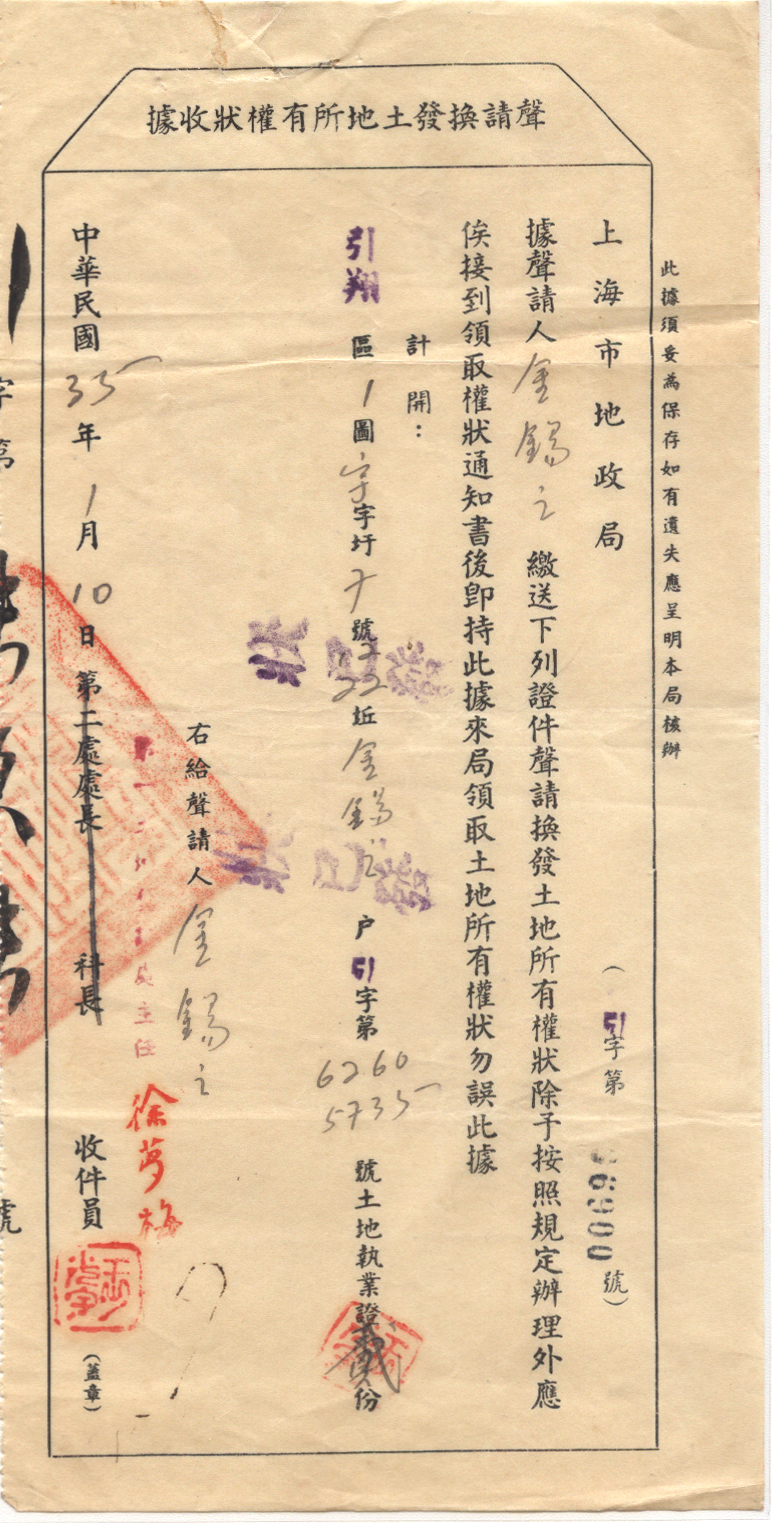 聲請換發土地所有權狀收據
此據須妥為保存如有遺失應呈明本局核辦
上海市地政局 (引字第 36900 號)
據聲請人金錫之繳送下列證件聲請換發土地所有權狀除予按照規定辦理外應
俟接到領取權狀通知書後卽持此據來局領取土地所有權狀勿誤此據
計開：
引翔區1圖字圩號22坵金錫之戶引字第6260 5735號土地執業證貳份
狀已發
狀已發
右給聲請人金錫之
主任徐夢梅
中華民國35年1月10日第二處處長 科長 收件員 (蓋章)
字第 號